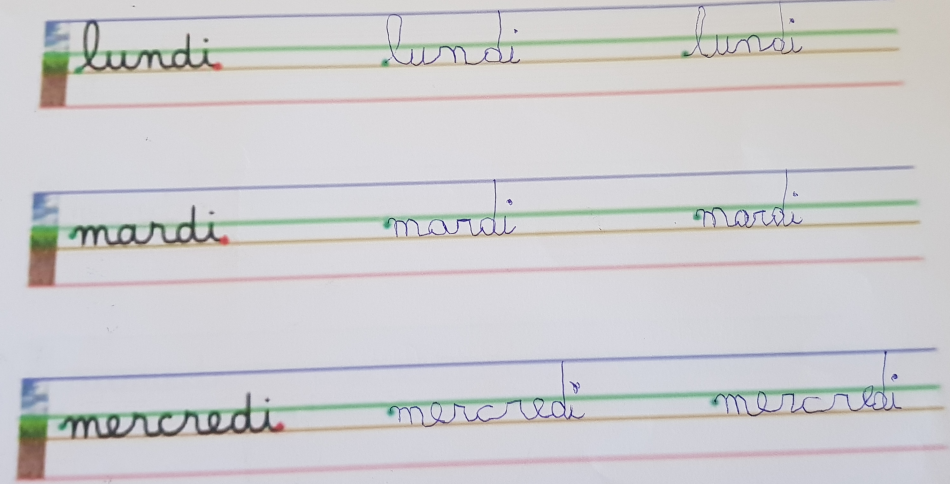 lundi lundi lundi
mardi mardi mardi
mercredi mercredi mercredi